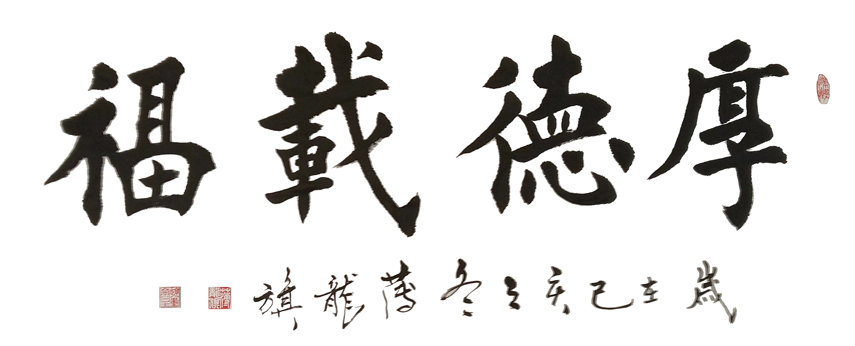 厚德載福
歲在己亥之冬薄龍旗